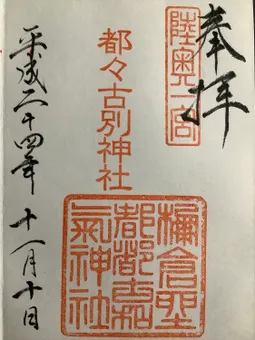 奉拝
陸奥一宮
都々古別神社
棚倉
都都古和
氣神社
平成二十四年 十一月十日